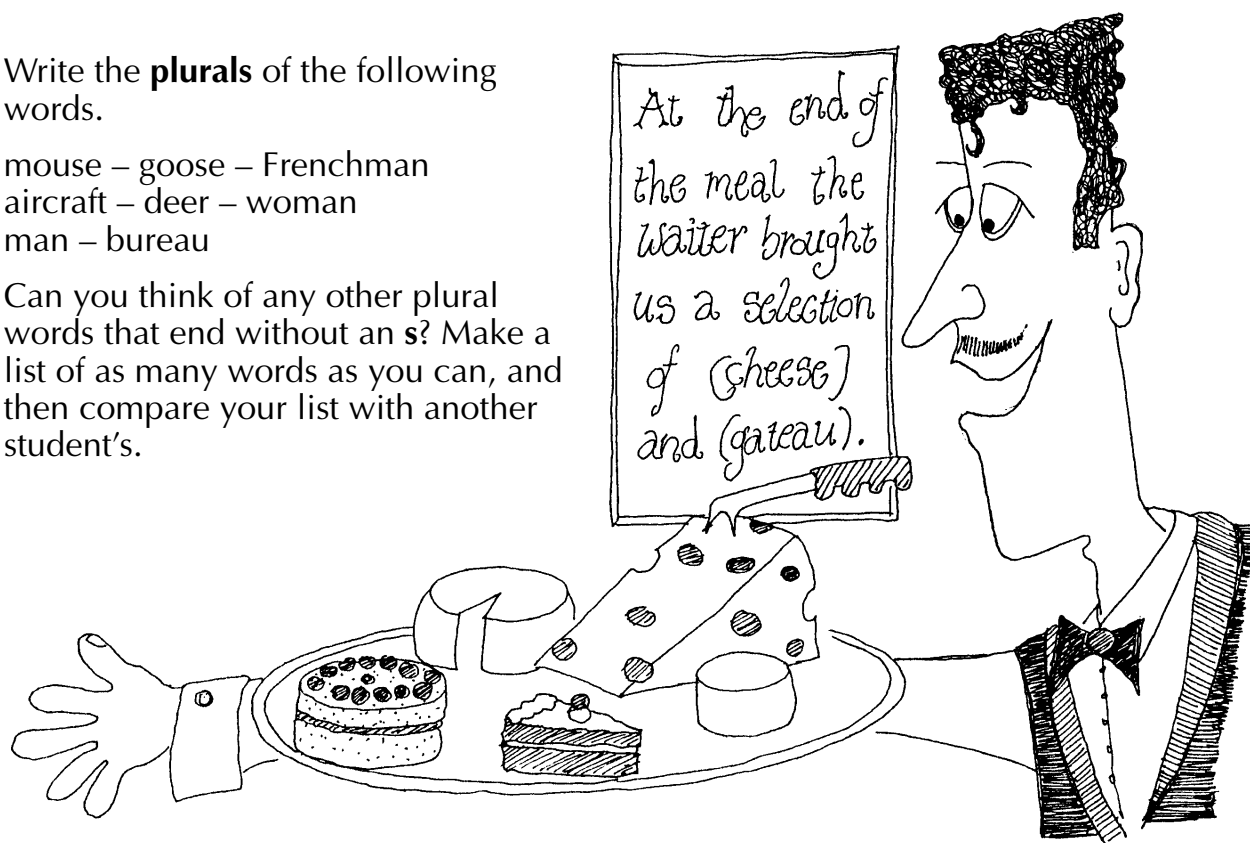 Write the plurals of the following
words.
mouse – goose – Frenchman
aircraft – deer – woman
man – bureau
Can you think of any other plural
words that end without an s? Make a
list of as many words as you can, and
then compare your list with another
student's.
At the end of
the meal the
waiter brought
us a selection
of (cheese)
and (gateau).